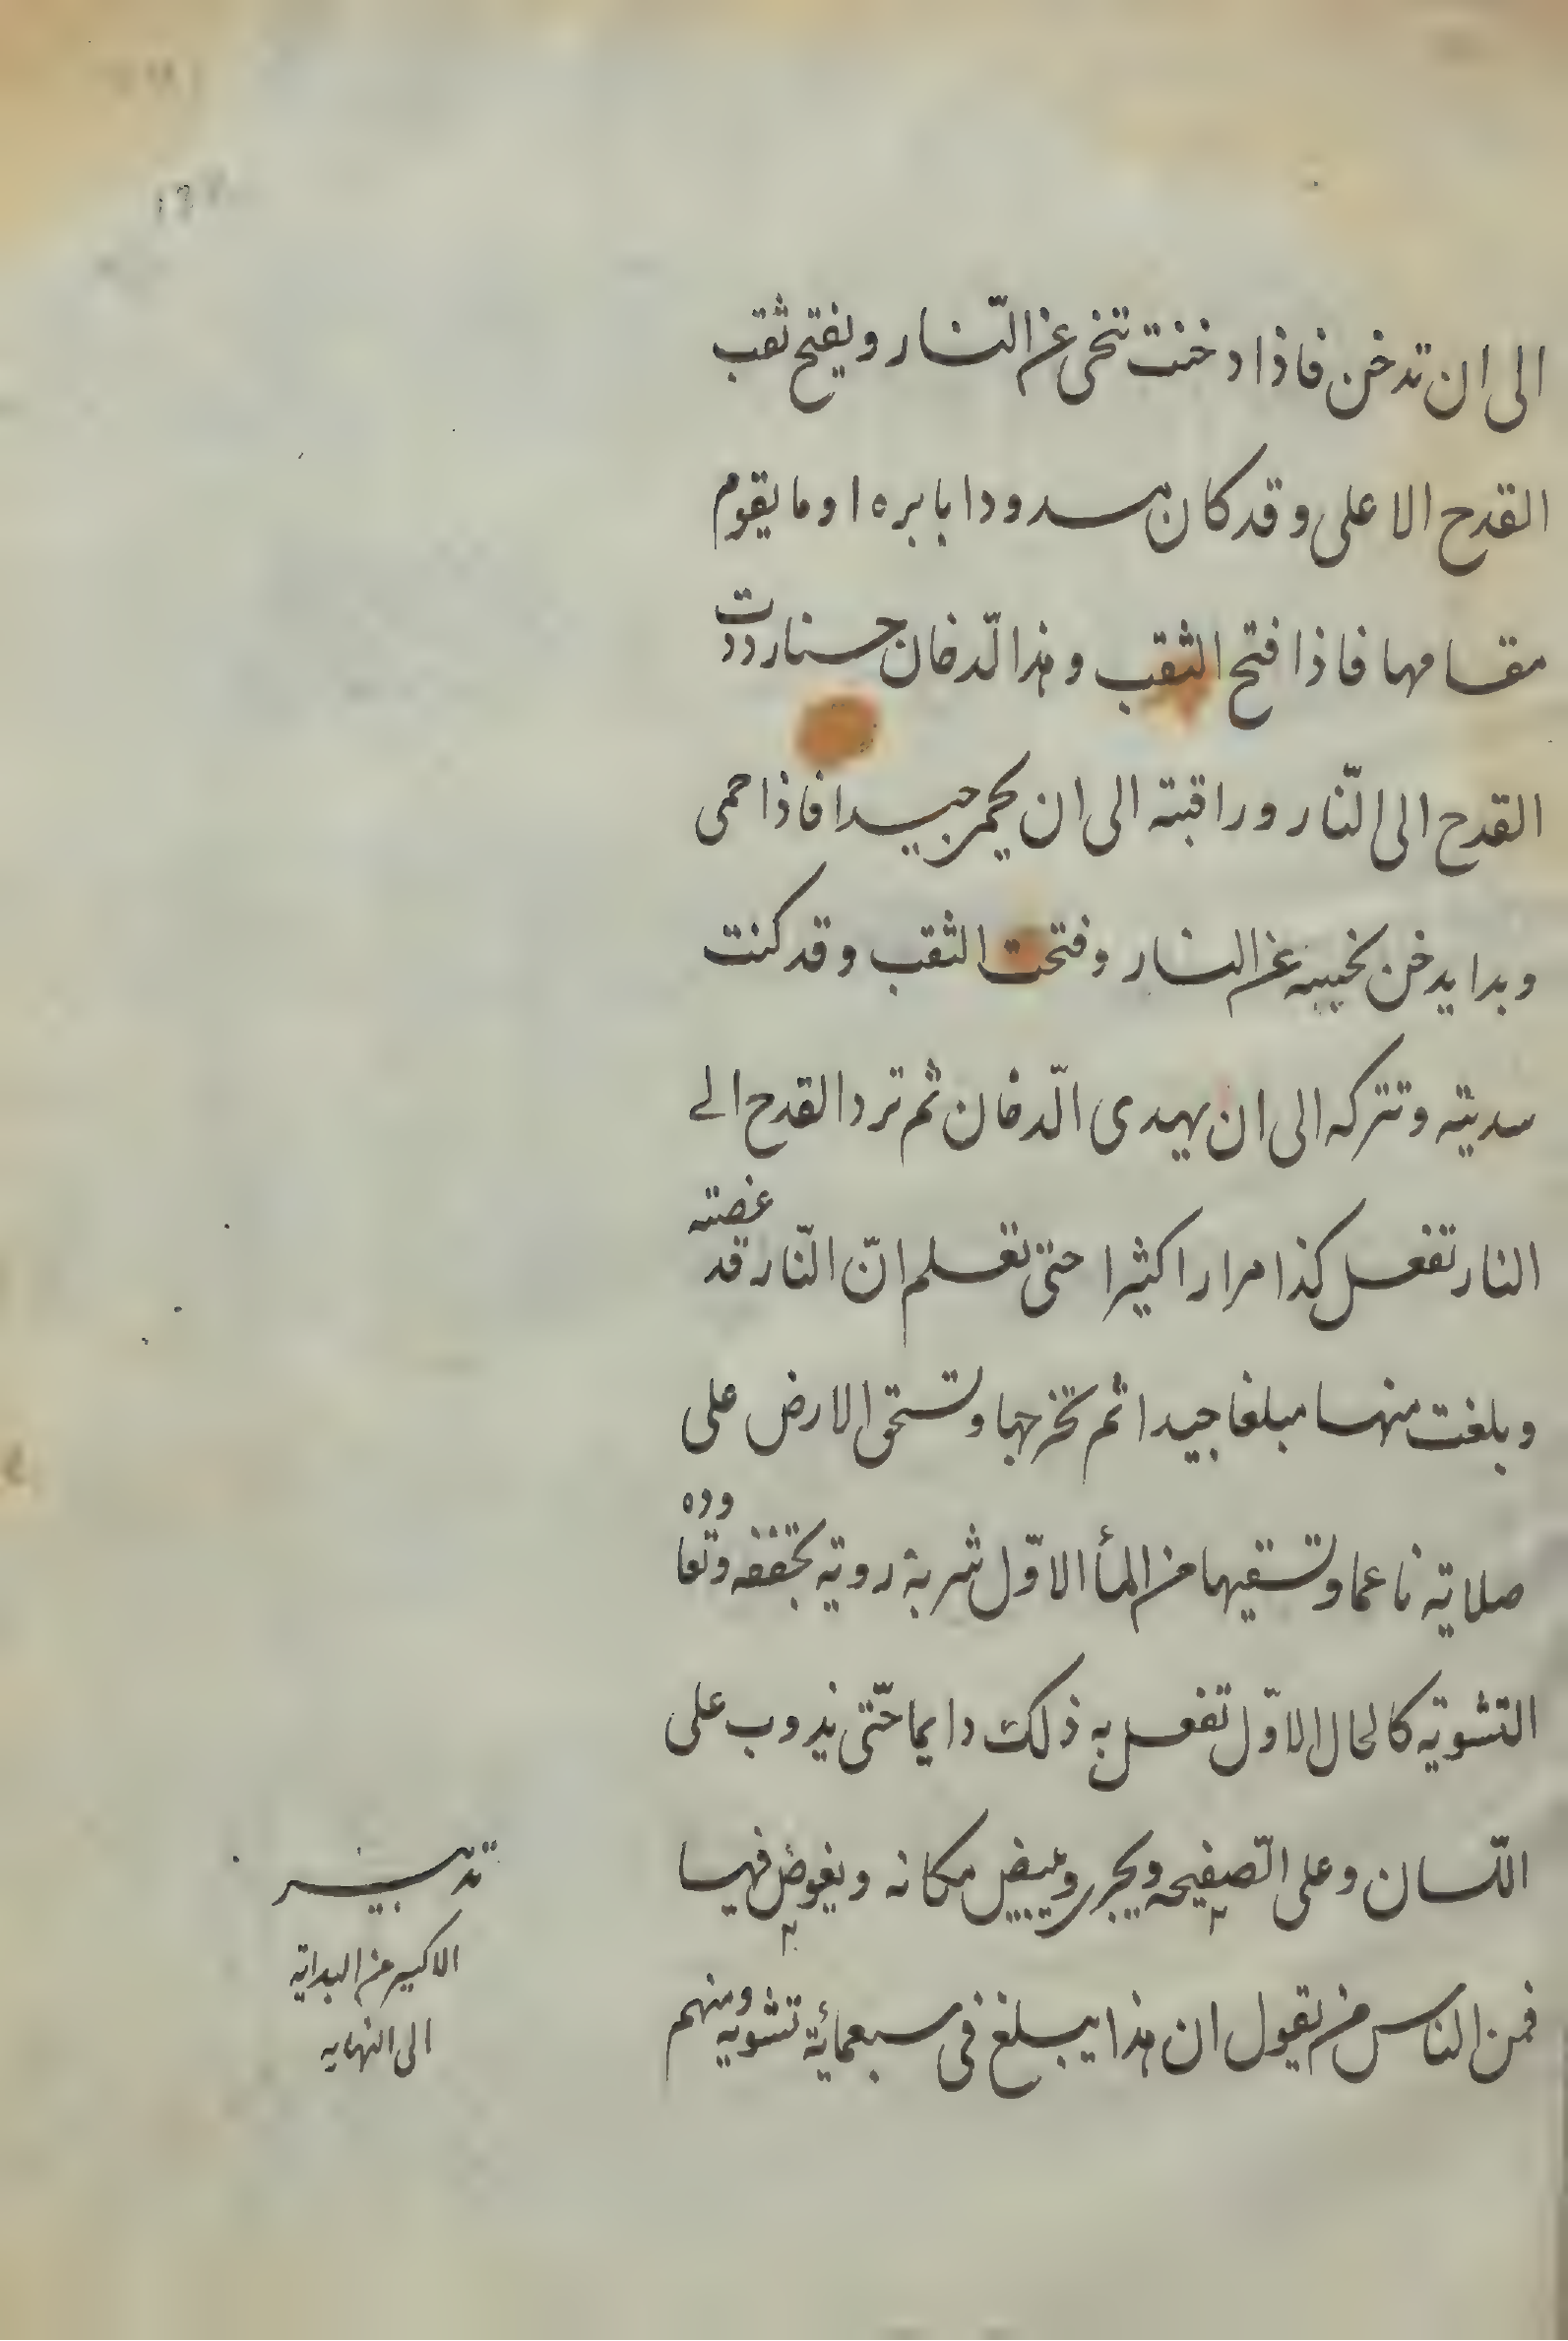 الى ان تدخن فاذا دخنت تنحى عن النّار ويفتح ثقب
القدح الاعلى وقد كان مسدودا بابره او ما يقوم
مقامها فاذا فتح الثقب وهذا الدّخان حسنا رددت
القدح الى النّار وراقبته الى ان يحمر جيدا فاذا حمى
وبدا يدخن نحيته عن النار وفتحت الثقب وقد كنت
سديته وتتركه الى ان يهدى الدّخان ثم ترد القدح الى
النار تفعل كذا مرارا كثيرا حتى تعلم انّ النّار قد غصته
وبلغت منها مبلغا جيدا ثم تخرجها وتسحق الارض على
صلاته ناعما وتسقيها من المأ الاوّل شربة رويه تجففه وتعاوده
التشويه كالحال الاوّل تفعل به ذلك دايما حتّى يذوب على
اللّسان وعلى الصّفيحه ويجرى ويبيض مكانه ويغوص فيها
فمن الناس من يقول ان هذا يبلغ فى سبعمائة تشويه ومنهم
تدبير
الاكسير من البداية
الى النهايه